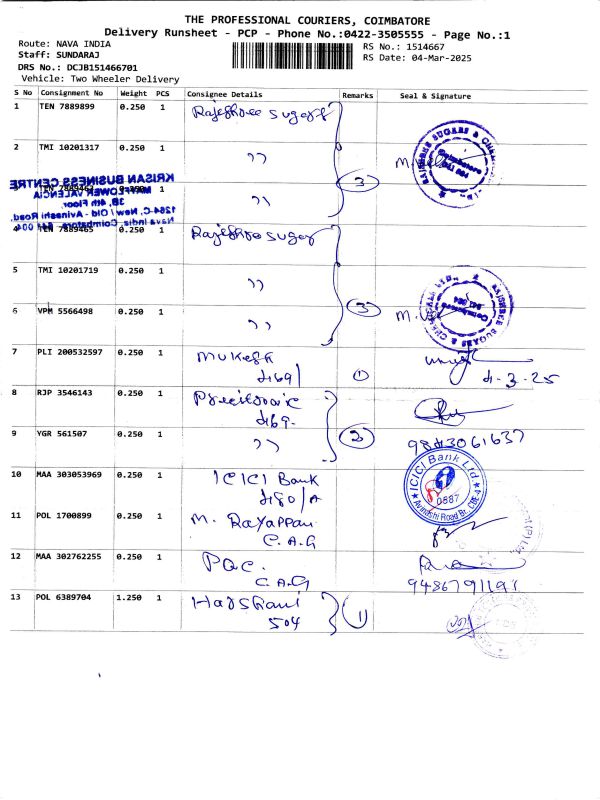 THE PROFESSIONAL COURIERS, COIMBATORE
Delivery Runsheet - PCP - Phone No.:0422-3505555 - Page No.:1
Route: NAVA INDIA
RS No.: 1514667
Staff: SUNDARAJ
RS Date: 04-Mar-2025
DRS No.: DCJB151466701
Vehicle: Two Wheeler Delivery
S No Consignment No Weight PCS Consignee Details Remarks Seal & Signature
1 TEN 7889899 0.250 1
2 TMI 10201317 0.250 1 "
3 0.250 1 " 3
KRISAN BUSINESS CENTRE
MAYFLOWER VALENCIA
3B, 4th Floor,
1264-C, New / Old - Avinashi Road,
Nava India, Coimbatore, 641 004
4 TEN 7889465 0.250 1
5 TMI 10201719 0.250 1 "
6 VPM 5566498 0.250 1 " 3
7 PLI 200532597 0.250 1 Mukesh
4691 1 4-3-25
8 RJP 3546143 0.250 1
469.
9 YGR 561507 0.250 1 " 2 9843061637
10 MAA 303053969 0.250 1 ICICI Bank
480/A
ICICI Bank Ltd.
0887
Avinashi Road Br. CBE-4
11 POL 1700899 0.250 1 M. Rayappan
C.A.G
12 MAA 302762255 0.250 1
C.A.G 9486791191
13 POL 6389704 1.250 1 Harshani
504 1
RAJSHREE SUGARS &
Coimbatore
641 004
RAJSHREE SUGARS & CHEMICALS LTD.,
Coimbatore
641 004